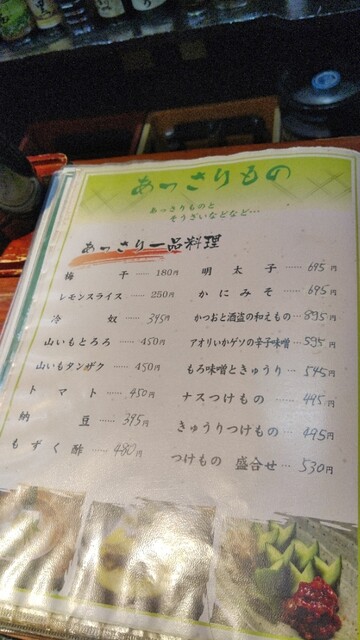 あっさりもの
あっさりものと
そうざいなどなど…
あっさり一品料理
梅干 …… 180円
レモンスライス …… 250円
冷奴 …… 395円
山いもとろろ …… 450円
山いもタンザク …… 450円
トマト …… 450円
納豆 …… 395円
もずく酢 …… 480円
明太子 …… 695円
かにみそ …… 695円
かつおと酒盗の和えもの … 895円
アオリいかゲソの辛子味噌 … 595円
もろ味噌ときゅうり … 545円
ナスつけもの …… 495円
きゅうりつけもの …… 495円
つけもの 盛合せ … 530円